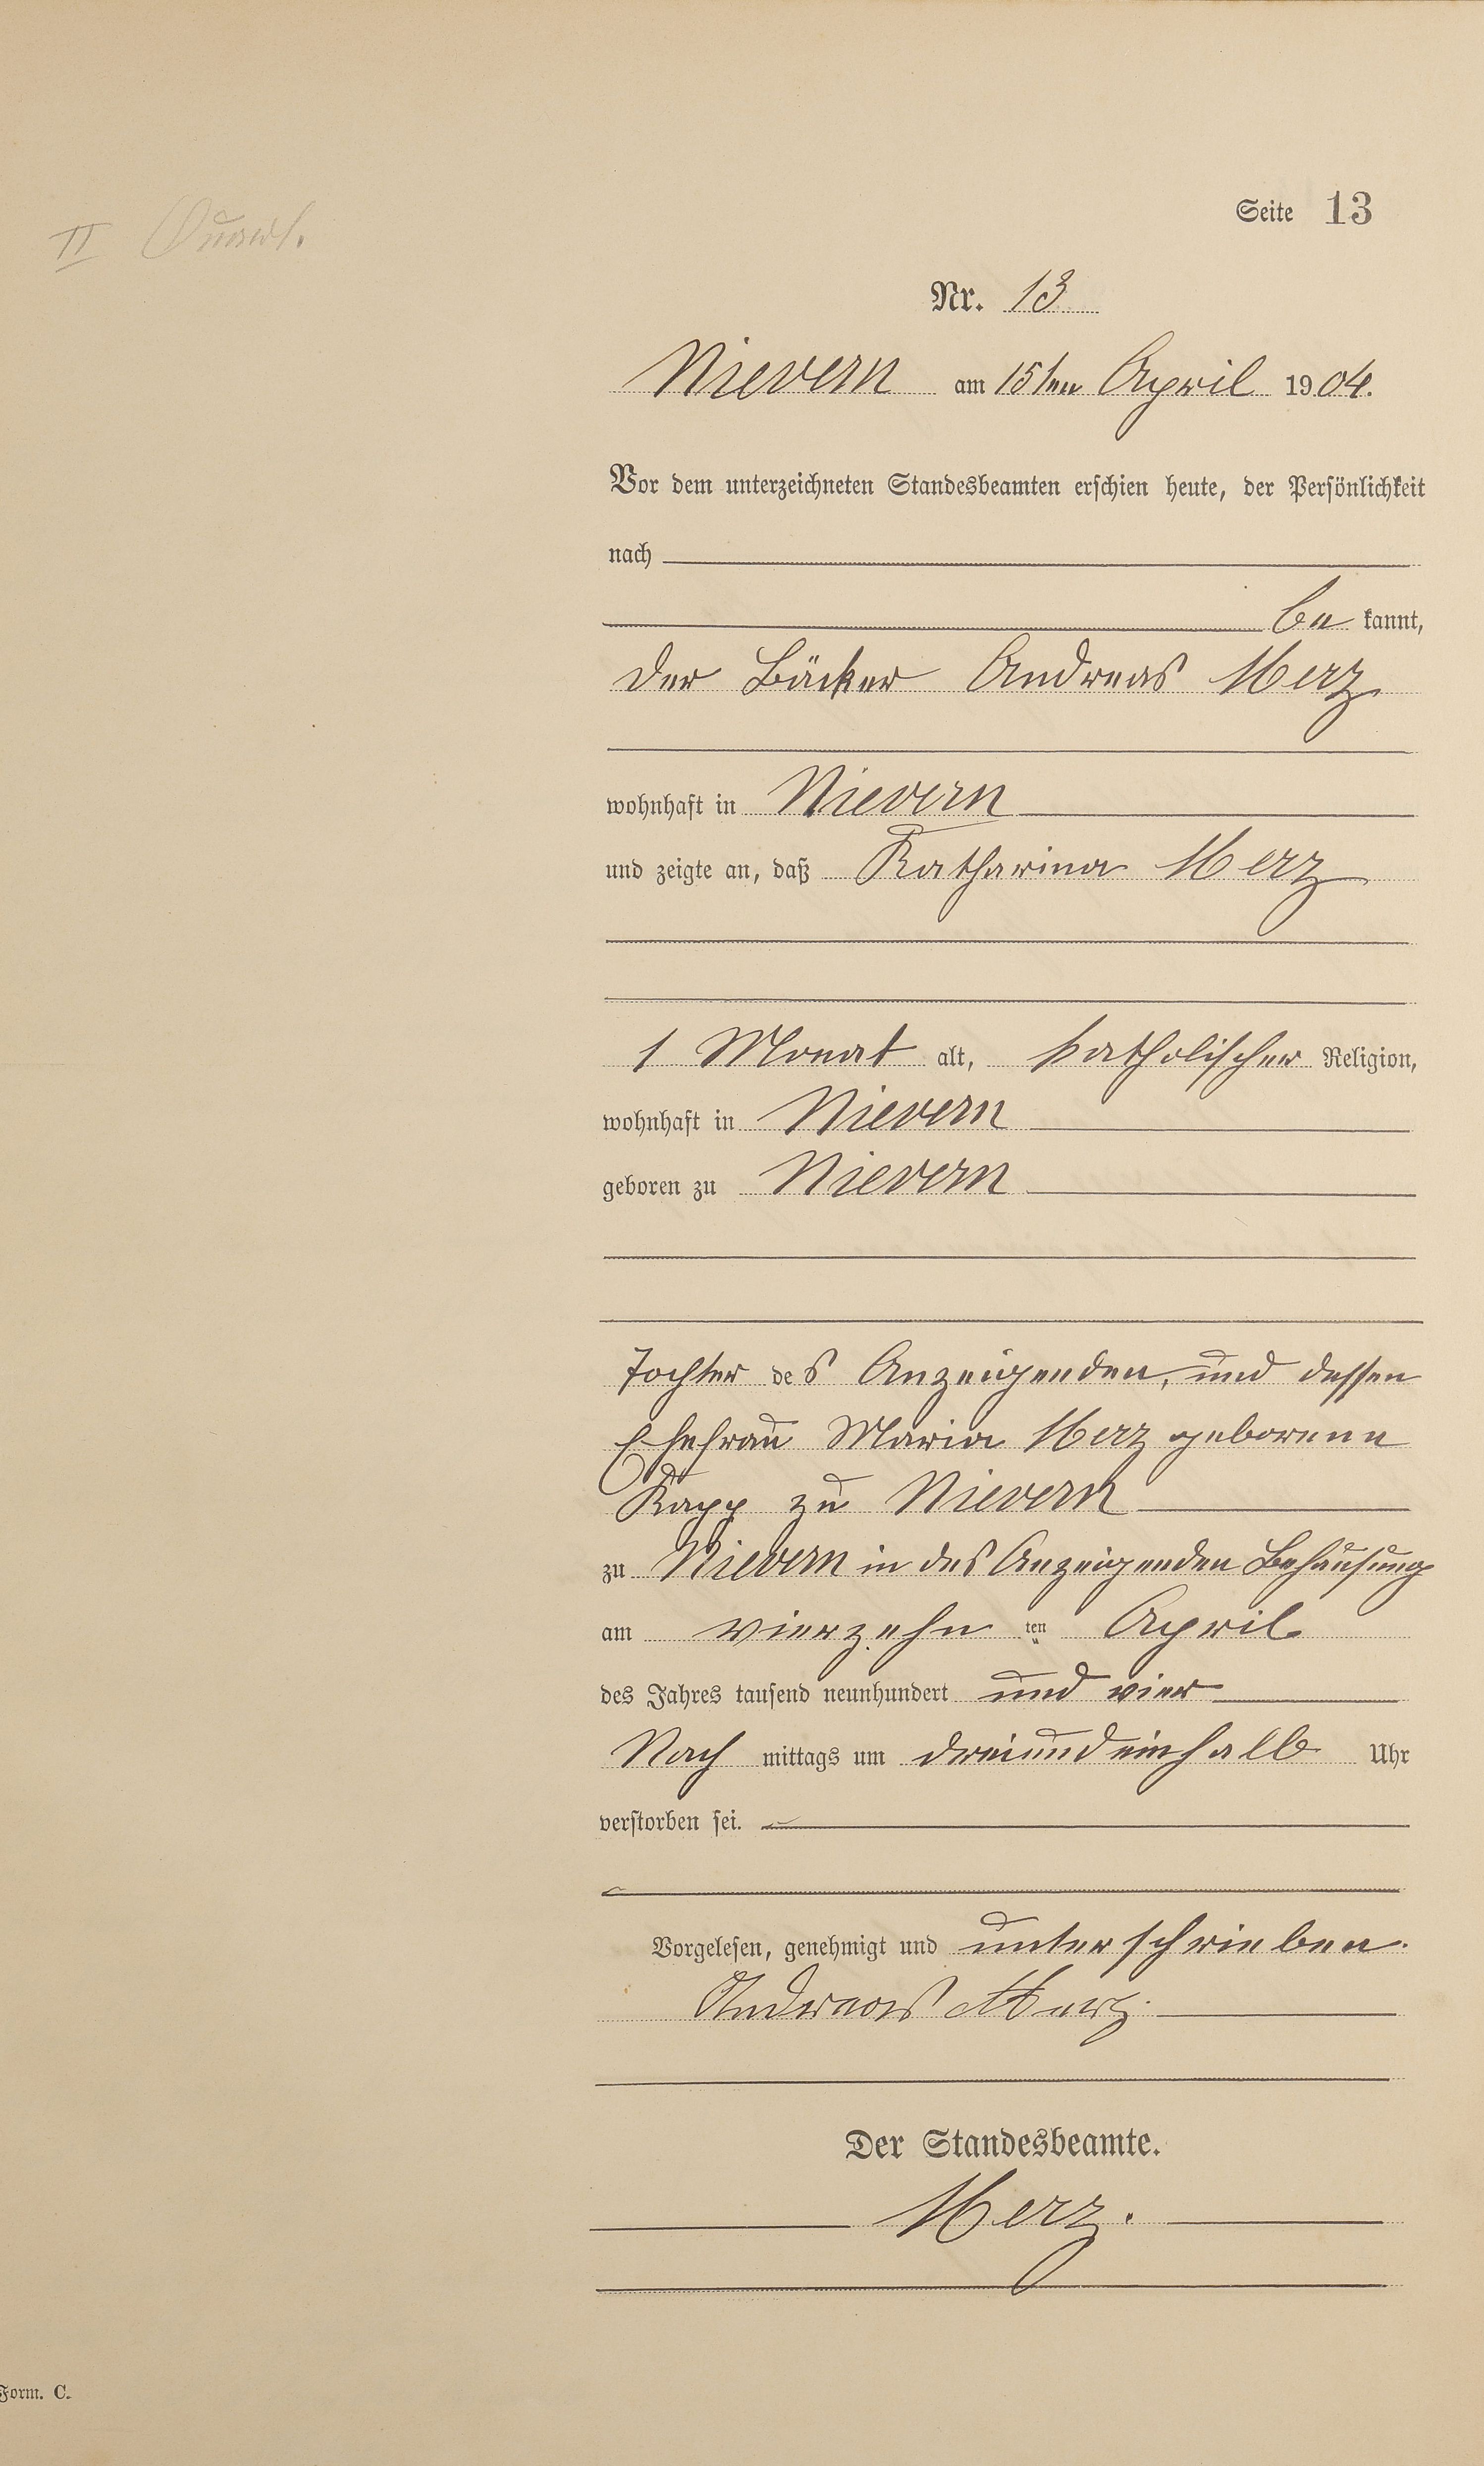 II Quart.
Seite 13
Nr. 13
Nievern am 15ten April 1904.
Vor dem unterzeichneten Standesbeamten erschien heute, der Persönlichkeit
nach
be kannt,
der Bäcker Andreas Merz
wohnhaft in Nievern
und zeigte an, daß Katharina Merz
1 Monat alt, katholischer Religion,
wohnhaft in Nievern
geboren zu Nievern
Tochter des Anzeigenden, und dessen
Ehefrau Maria Merz geborene
Rapp zu Nievern
zu Nievern in des Anzeigenden Behausung
am vierzehn ten April
des Jahres tausend neunhundert und vier
Nach mittags um dreiundeinhalb Uhr
verstorben sei.
Vorgelesen, genehmigt und unterschrieben.
Andreas Merz.
Der Standesbeamte.
Merz.
Form. C.